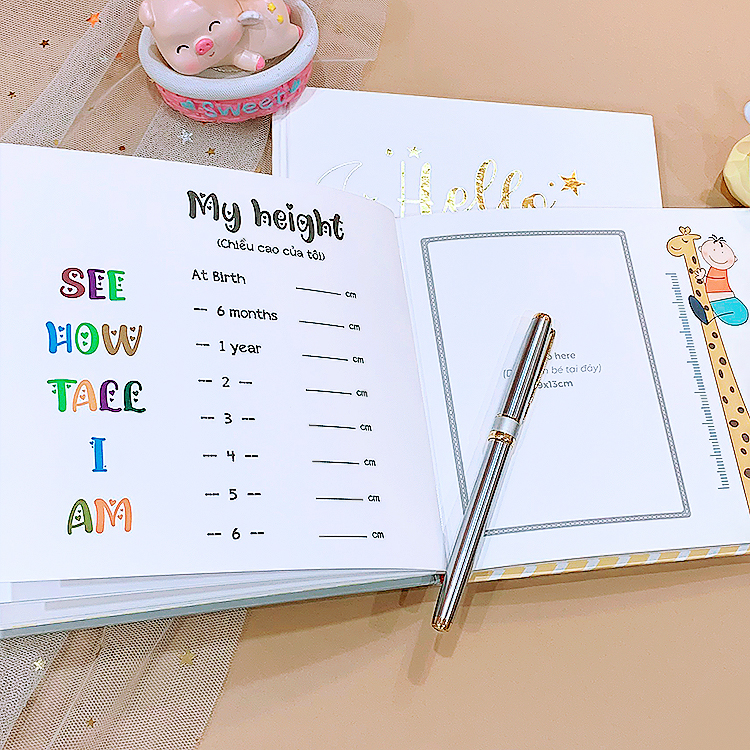 Sweet
Hello
My height
(Chiều cao của tôi)
SEE
HOW
TALL
I
AM
At Birth ______ cm
-- 6 months ______ cm
-- 1 year ______ cm
-- 2 -- ______ cm
-- 3 -- ______ cm
-- 4 -- ______ cm
-- 5 -- ______ cm
-- 6 -- ______ cm
here
bé tại đây)
9x13cm